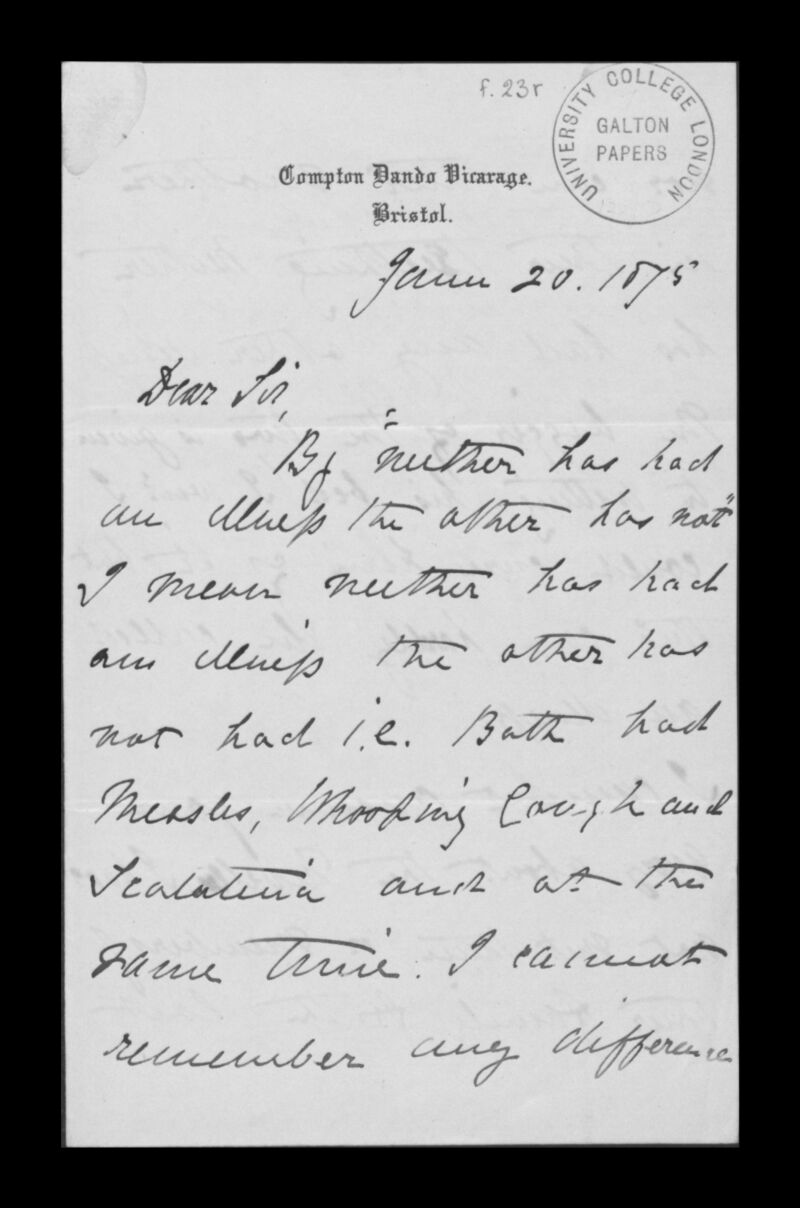 f. 23r
UNIVERSITY COLLEGE LONDON
GALTON
PAPERS
Compton Dando Vicarage.
Bristol.
20. 1875
Dear Sir,
By "neither has had
an illness the other has not"
I mean neither has had
an illness the other has
not had i.e. Both had
Measles, Whooping Cough and
Scalatina and at the
same time. I cannot
remember any difference